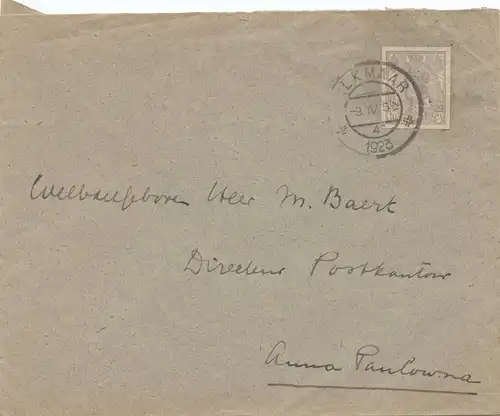 ALKMAAR
4
1923
Weledelgeboren Heer M. Baert
Directeur Postkantoor
Anna Paulowna